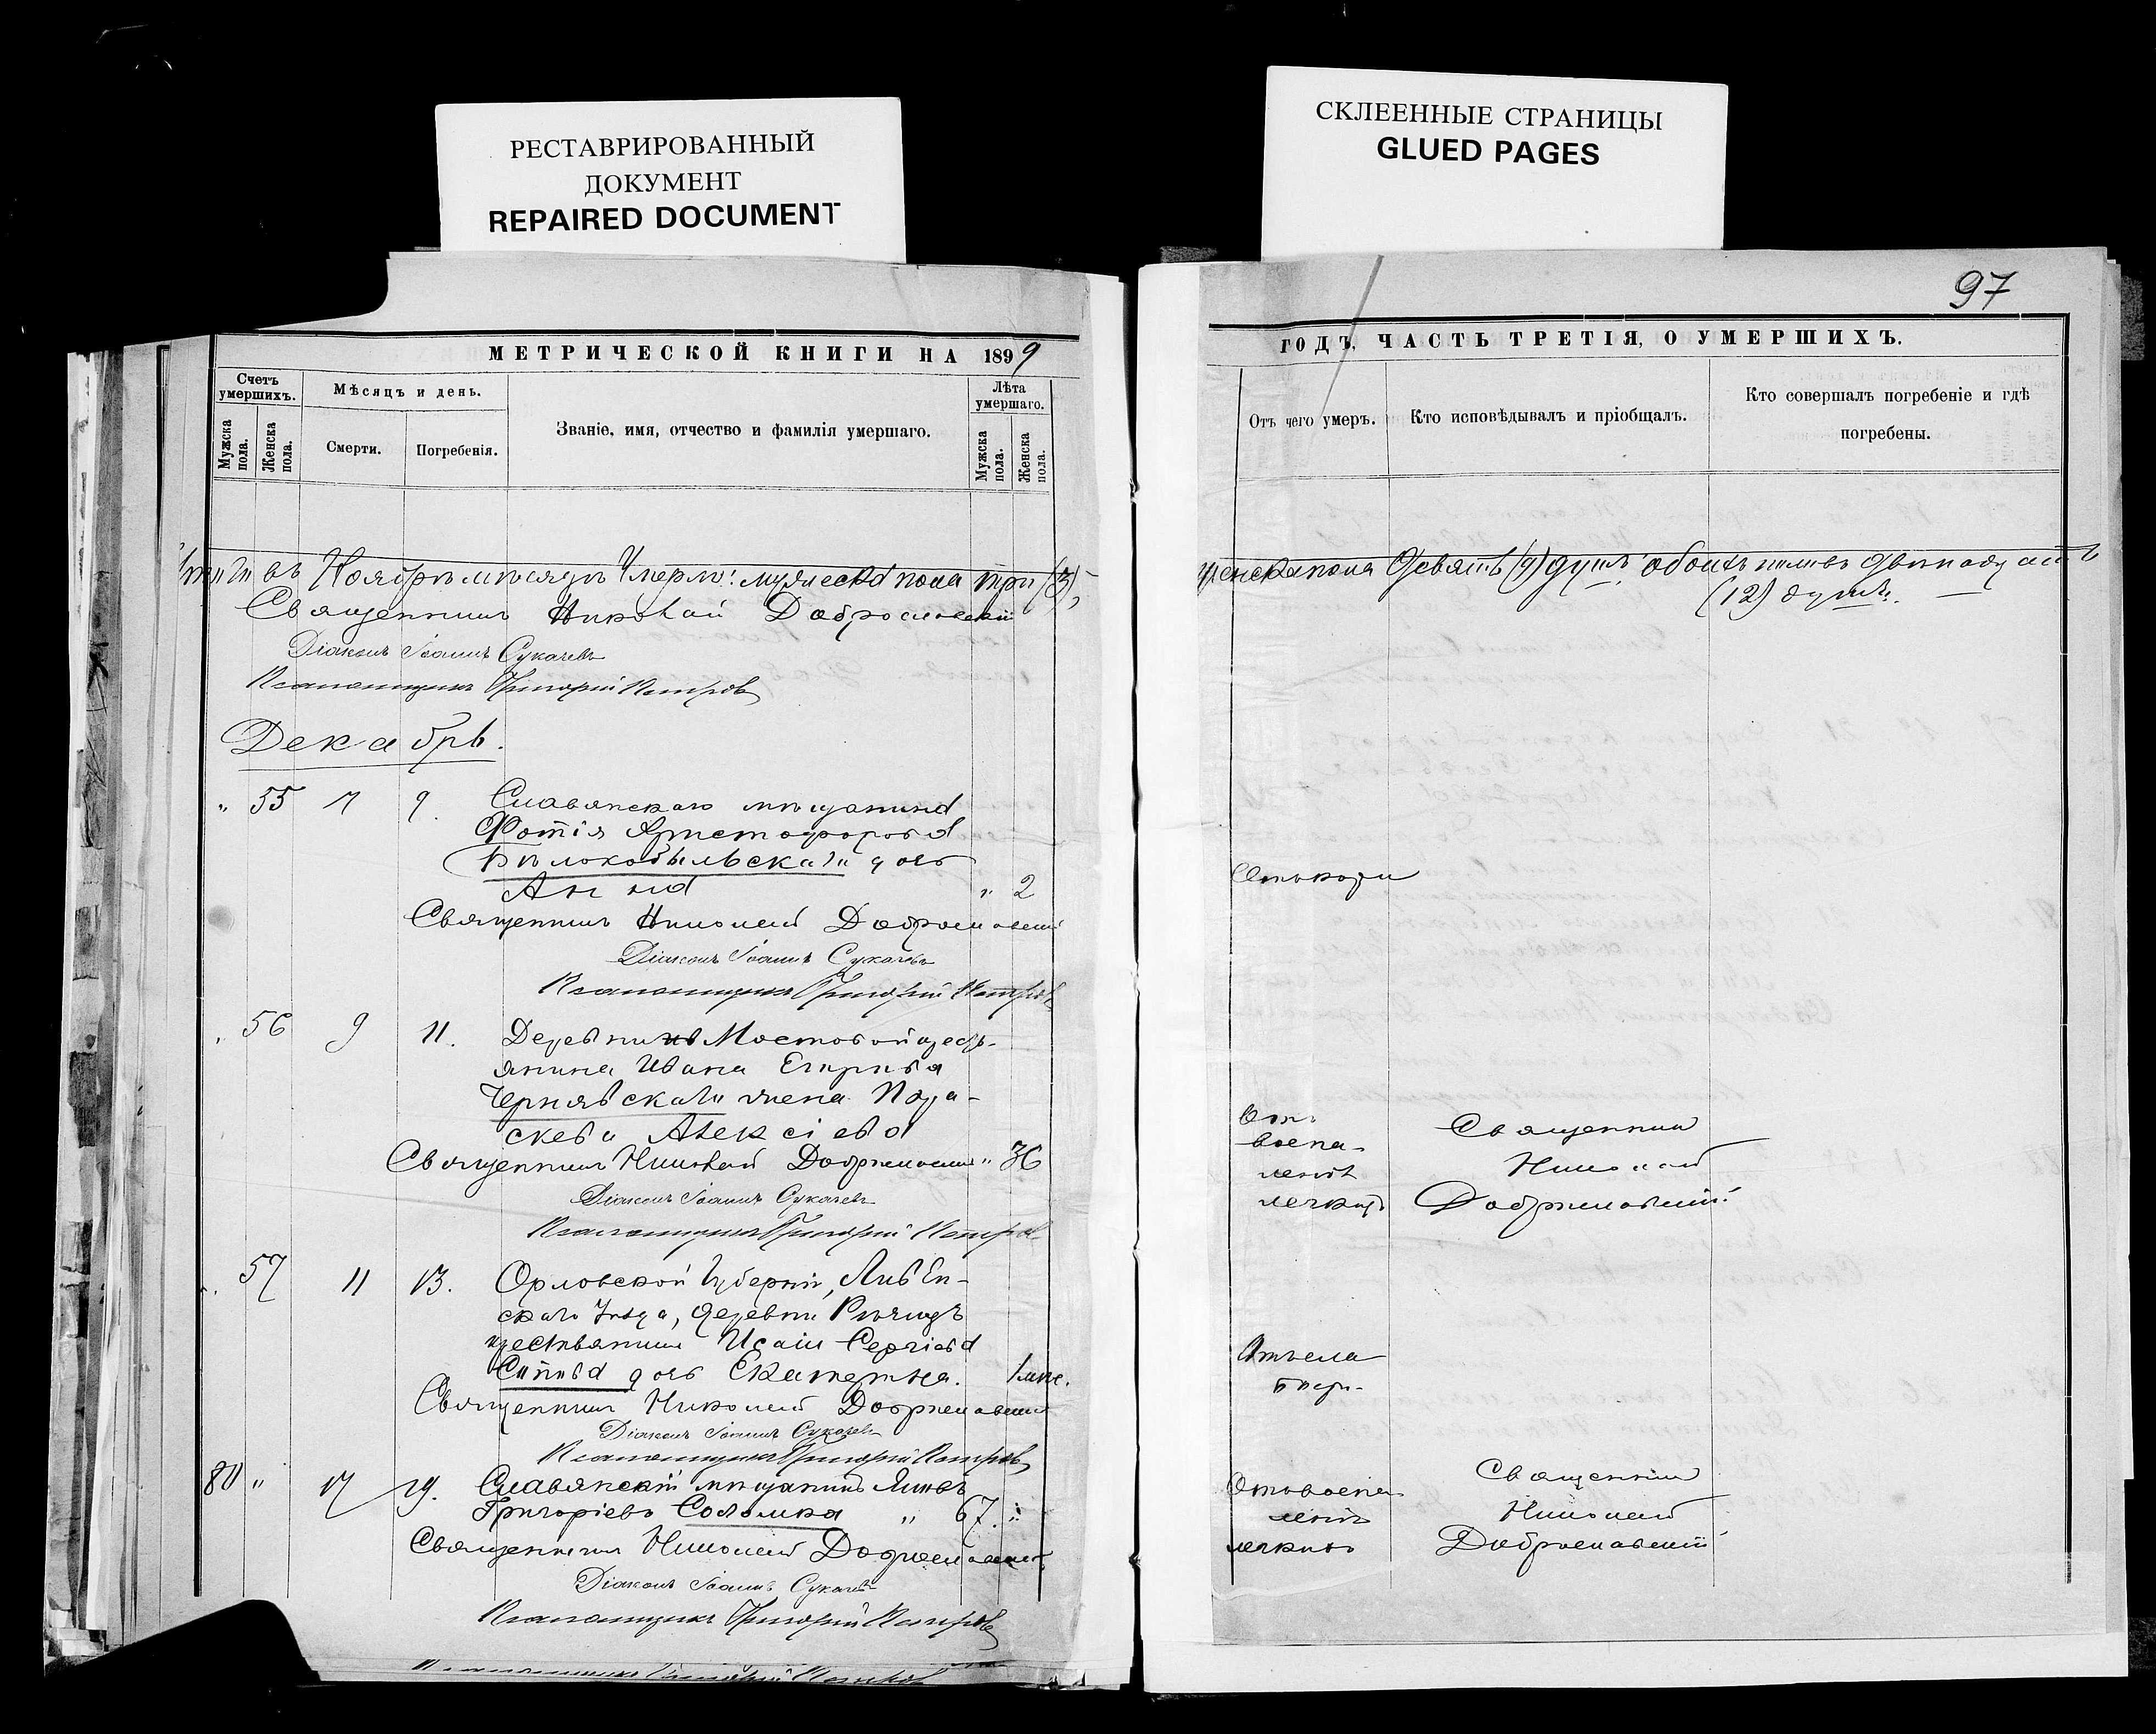 РЕСТАВРИРОВАННЫЙ
ДОКУМЕНТ
REPAIRED DOCUMENT
СКЛЕЕННЫЕ СТРАНИЦЫ
GLUED PAGES
МЕТРИЧЕСКОЙ КНИГИ НА 1899
Счетъ умершихъ.
Мужска пола.
Женска пола.
Мѣсяцъ и день.
Смерти.
Погребенія.
Званіе, имя, отчество и фамилія умершаго.
Лѣта умершаго.
Мужска пола.
Женска пола.
Итого въ Ноябрѣ мѣсяцѣ умерло: мужеска пола три (3),
Священникъ Николай Доброславскій
Діаконъ Іоаннъ Сукачевъ
Псаломщикъ Григорій Петровъ
Декабрь.
" 55 7 9. Славянскаго мѣщанина
Фотія Христофорова
Бѣлокобыльскаго дочь
Анна " 2
Священникъ Николай Доброславскій
Діаконъ Іоаннъ Сукачевъ
Псаломщикъ Григорій Петровъ
" 56 9 11. Деревни Мостовой кресть-
янина Ивана Егорова
Чернявскаго жена Пара-
скева Алексіева
Священникъ Николай Доброславскій " 36
Діаконъ Іоаннъ Сукачевъ
Псаломщикъ Григорій Петровъ
" 57 11 13. Орловской губерніи, Ливен-
скаго уѣзда, деревни
крестьянина Исаіи Сергіева
дочь Екатерина. 1 мѣс.
Священникъ Николай Доброславскій
Діаконъ Іоаннъ Сукачевъ
Псаломщикъ Григорій Петровъ
80 " 17 19. Славянскій мѣщанинъ
Григоріевъ Соломка " 67. "
Священникъ Николай Доброславскій
Діаконъ Іоаннъ Сукачевъ
Псаломщикъ Григорій Петровъ
97
ГОДЪ, ЧАСТЬ ТРЕТІЯ, О УМЕРШИХЪ.
Отъ чего умеръ.
Кто исповѣдывалъ и пріобщалъ.
Кто совершалъ погребеніе и гдѣ погребены.
женска пола девять (9) душъ обоихъ половъ двѣнадцать
(12) душъ.
Отъ кори
Отъ
воспа-
ленія
легкихъ
Священникъ
Николай
Доброславскій
Отъ воспа
ленія
легкихъ
Священникъ
Николай
Доброславскій